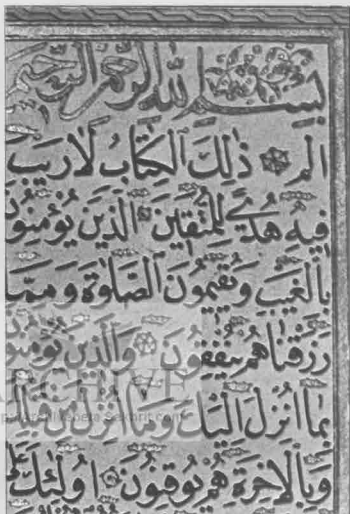 بسم الله الرحمن الرحيم
الم ذٰلِكَ ٱلْكِتَابُ لَا رَيْبَ
فِيهِ هُدًى لِلْمُتَّقِينَ ٱلَّذِينَ يُؤْمِنُونَ
بِٱلْغَيْبِ وَيُقِيمُونَ ٱلصَّلٰوةَ وَمِمَّا
رَزَقْنَاهُمْ يُنْفِقُونَ وَٱلَّذِينَ يُؤْمِنُونَ
بِمَا أُنْزِلَ إِلَيْكَ وَمَا أُنْزِلَ مِنْ
وَبِٱلْآخِرَةِ هُمْ يُوقِنُونَ أُولٰئِكَ
ARCHIVE